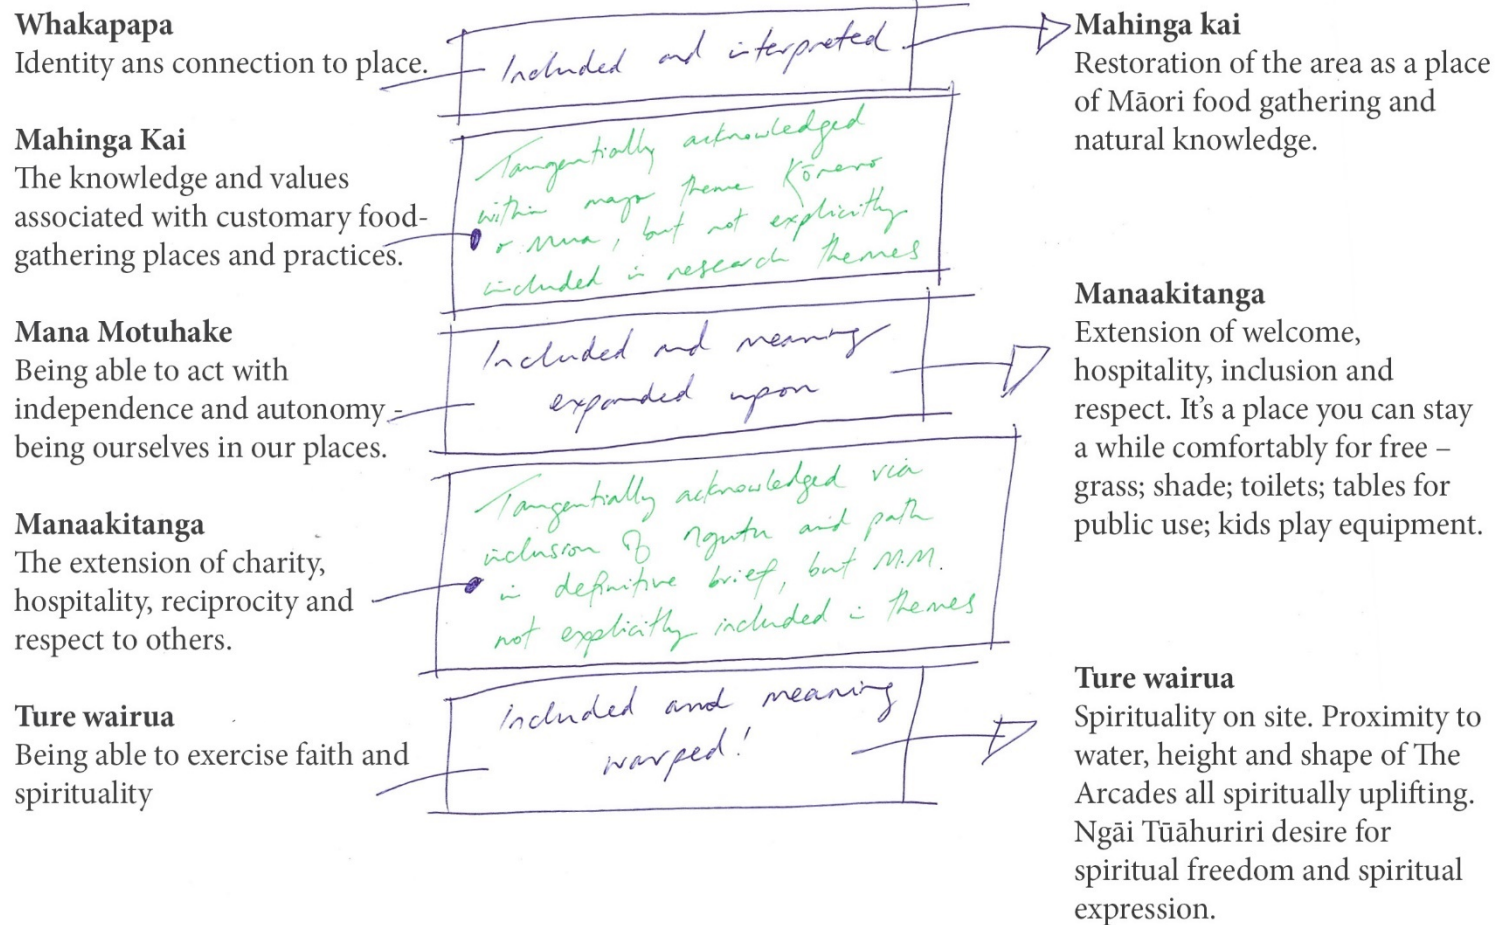 Whakapapa
Identity ans connection to place.
Mahinga Kai
The knowledge and values
associated with customary food-
gathering places and practices.
Mana Motuhake
Being able to act with
independence and autonomy -
being ourselves in our places.
Manaakitanga
The extension of charity,
hospitality, reciprocity and
respect to others.
Ture wairua
Being able to exercise faith and
spirituality
Included and interpreted
Tangentially acknowledged
within major theme Kōrero
o Mua, but not explicitly
included in research themes
Included and meaning
expanded upon
Tangentially acknowledged via
inclusion of ngutu and path
in definitive brief, but M.M.
not explicitly included in themes
Included and meaning
warped!
Mahinga kai
Restoration of the area as a place
of Māori food gathering and
natural knowledge.
Manaakitanga
Extension of welcome,
hospitality, inclusion and
respect. It's a place you can stay
a while comfortably for free –
grass; shade; toilets; tables for
public use; kids play equipment.
Ture wairua
Spirituality on site. Proximity to
water, height and shape of The
Arcades all spiritually uplifting.
Ngāi Tūāhuriri desire for
spiritual freedom and spiritual
expression.